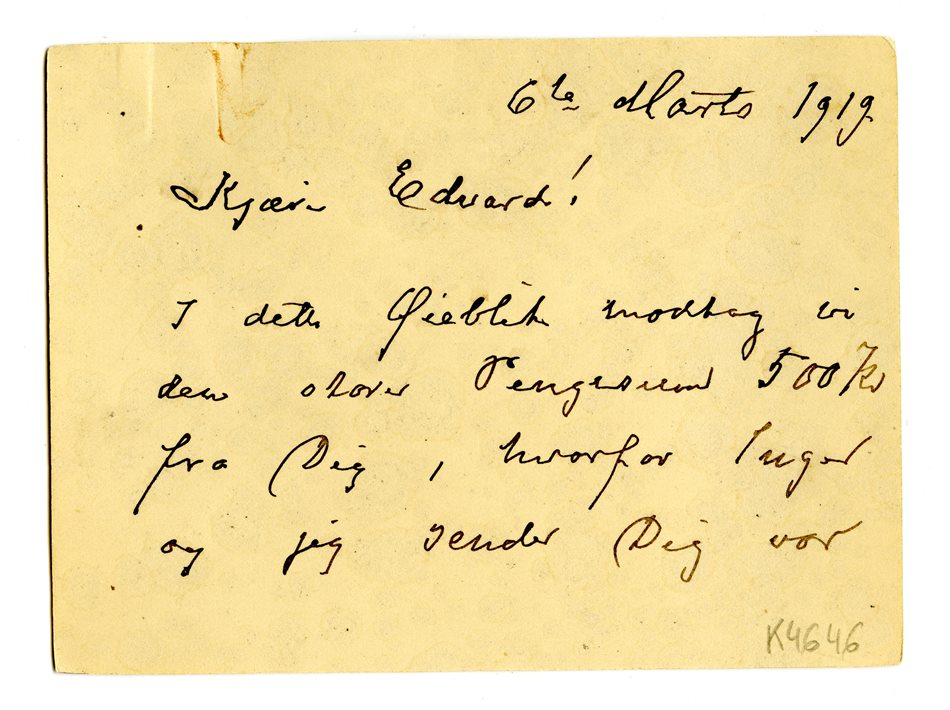 6te Marts 1919
Kjære Edvard!
I dette Øieblik modtog vi
den store Pengesum 500 Kr
fra Dig, hvorfor Inger
og jeg sender Dig vor
K4646